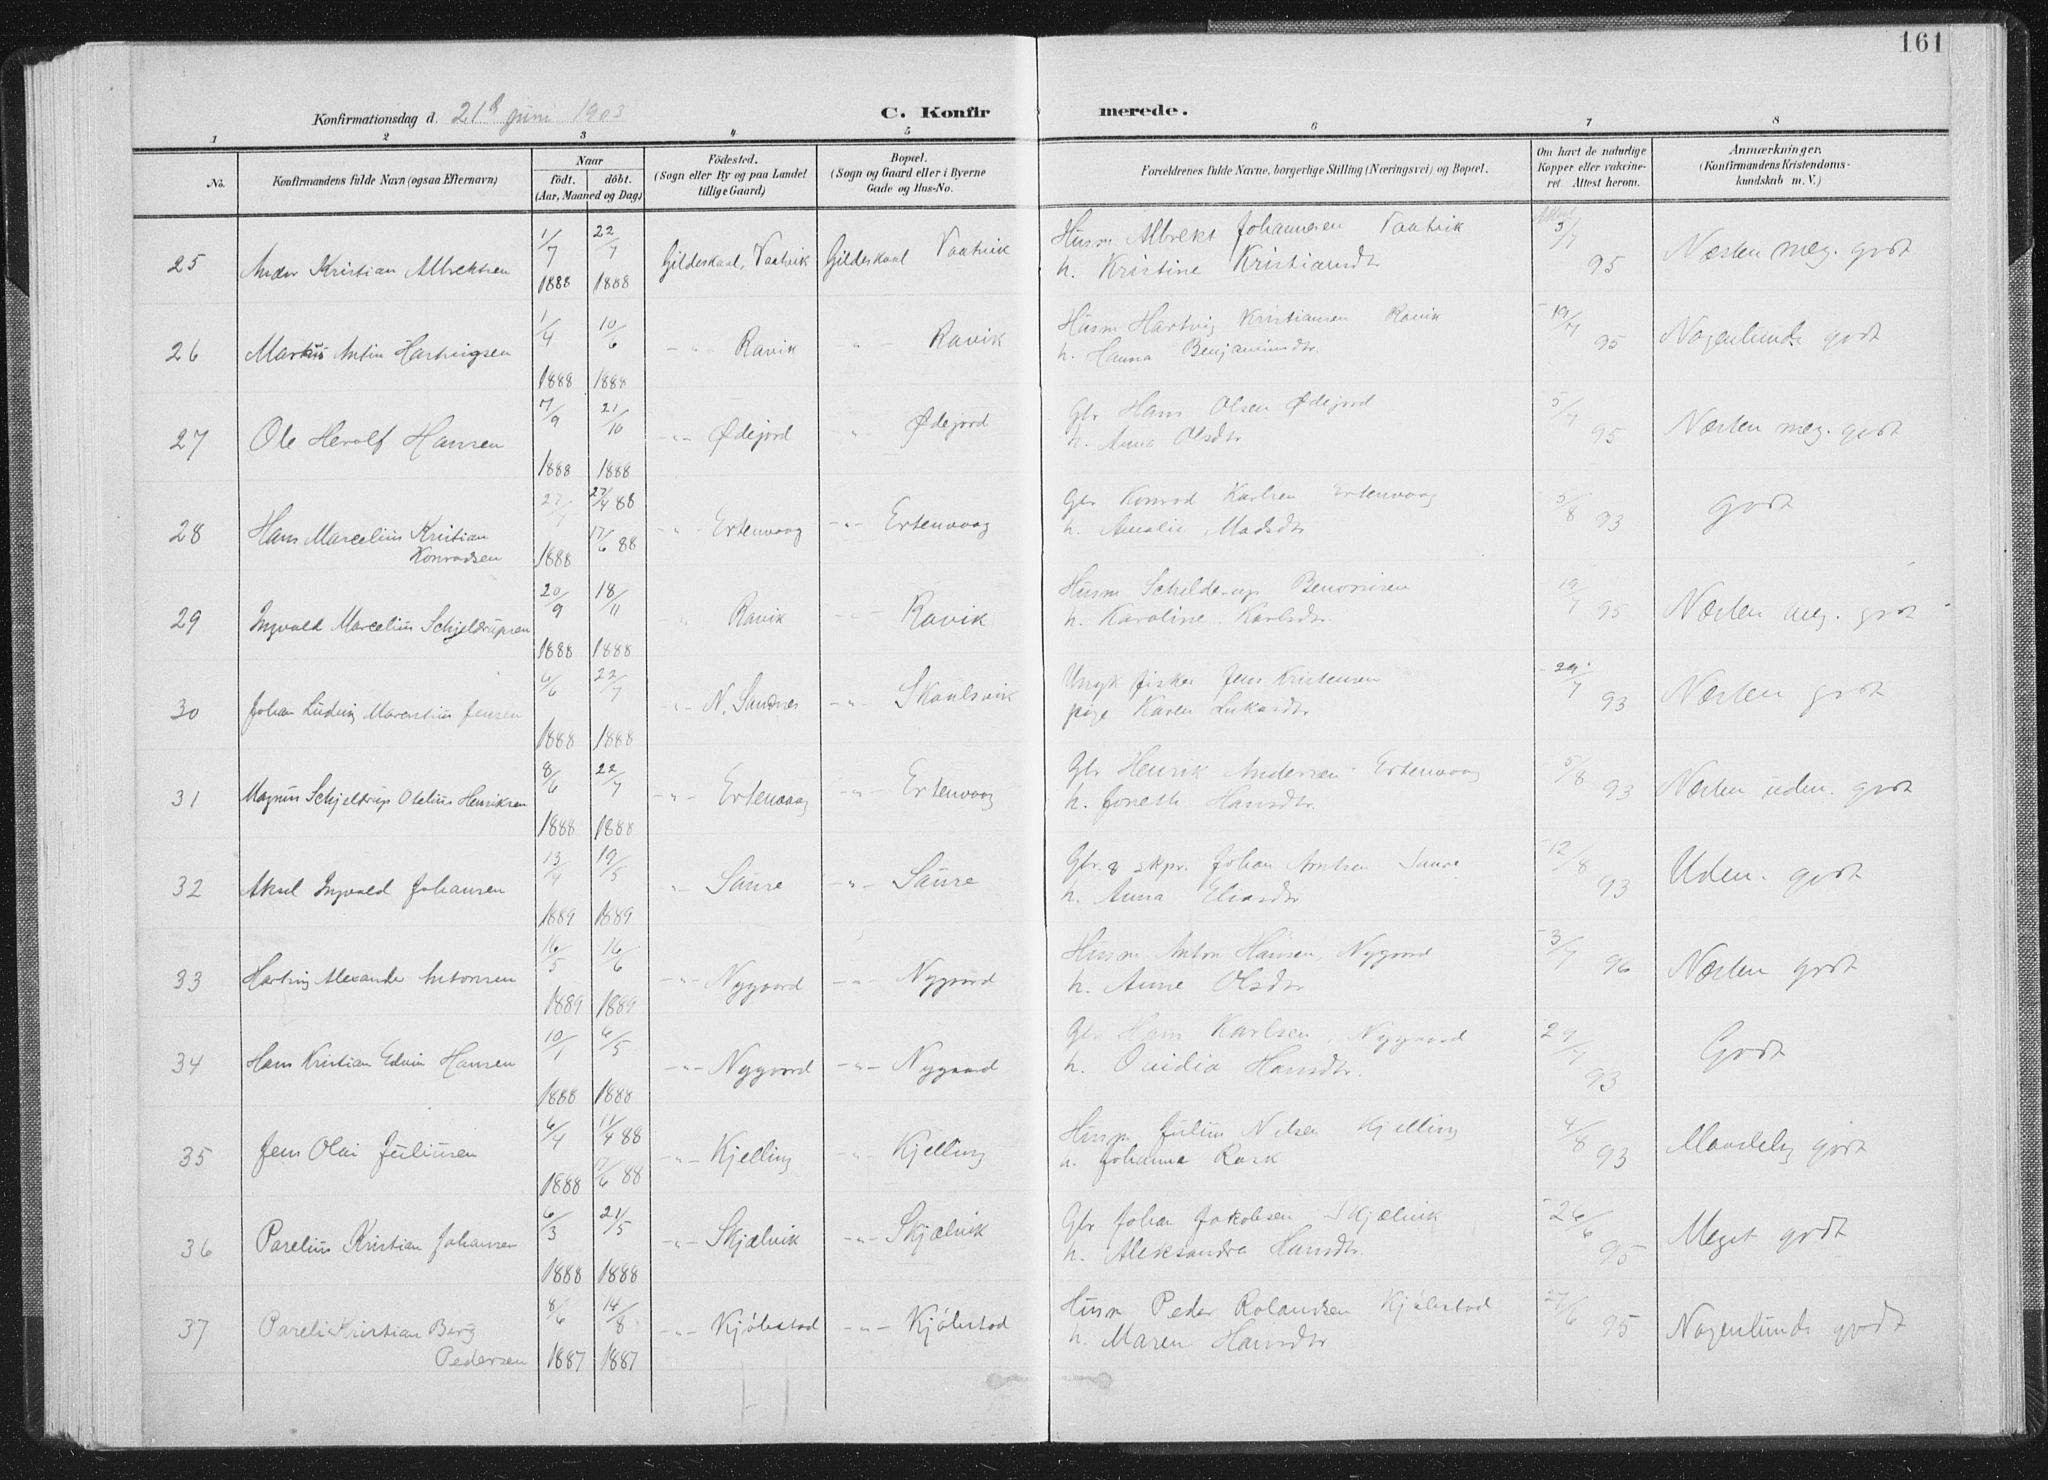 161
Konfirmationsdag d. 21d juni 1903
C. Konfirmerede.
1 2 3 4 5 6 7 8
No. Konfirmandens fulde Navn (ogsaa Efternavn) Naar födt. döbt. (Aar, Maaned og Dag) Födested. (Sogn eller By og paa Landet tillige Gaard) Bopæl. (Sogn og Gaard eller i Byerne Gade og Hus-No. Forældrenes fulde Navne, borgerlige Stilling (Næringsvei) og Bopæl. Om havt de naturlige Kopper eller vaksineret Attest herom. Anmærkninger. (Konfirmandens Kristendomskundskab m. V.)
25 Ander Kristian Albrektsen 1/7 1888 22/7 1888 Gildeskaal, Vaatvik Gildeskaal Vaatvik Husm Albrekt Johannesen Vaatvik
h. Kristine Kristiansdtr 3/7 95 Næsten meg. godt
26 Markus Antin Hartvigsen 1/4 1888 10/6 1888 -"- Ravik " Ravik Husm Hartvig Kristiansen Ravik
h. Hanna Benjaminsdtr. 19/7 95 Nogenlunde godt
27 Ole Herolf Hansen 7/9 1888 21/10 1888 -"- Ødejord " Ødejord Gbr Hans Olsen Ødejord
h. Anna Olsdtr 5/7 95 Næsten meg. godt
28 Hans Marcelius Kristian
Konradsen 1888 27/4 88 17/6 88 -"- Ertenvaag -"- Ertenvaag Gbr Konrad Karlsen Ertenvaag
h. Amalie Madsdtr 5/8 93 godt
29 Ingvald Marcelius Schjeldrupsen 20/9 1888 18/11 1888 " Ravik -"- Ravik Husm Schelderup Benonisen
h. Karoline Karlsdtr. 19/7 95 Næsten meg. godt
30 Johan Ludvig Marentius Jensen 6/6 1888 22/7 1888 -"- N. Sandnes -"- Skaulsvik Ungk fisker Jens Kristensen
pige Karen Lukasdtr 29/7 93 Næsten godt
31 Magnus Schjeldrup Otelius Henriksen 8/6 1888 22/7 1888 -"- Ertenvaag -"- Ertenvaag Gbr Henrik Andersen Ertenvaag
h. Joneth Hansdtr. 5/8 93 Næsten uden. godt
32 Aksel Ingvald Johansen 13/4 1889 19/5 1889 -"- Saure -"- Saure Gbr. & skpr. Johan Arntsen Saure
h. Anna Eliasdtr 12/8 93 Uden. godt
33 Hartvig Alexander Antonsen 16/5 1889 16/6 1889 -"- Nygaard -"- Nygaard Husm Anton Hansen, Nygaard
h. Anne Olsdtr 3/7 96 Næsten godt
34 Hans Kristian Edvin Hansen 10/1 1888 6/5 1888 -"- Nygaard -"- Nygaard Gbr Hans Karlsen, Nygaard
h. Ovidia Hansdtr. 29/7 93 Godt
35 Jens Olai Juliusen 6/4 1888 11/4 88 17/6 88 -"- Kjelling -"- Kjelling Husm Julius Nilsen Kjelling
h. Johanna Rask 4/8 93 Maadelig godt
36 Parelius Kristian Johansen 6/3 1888 21/5 1888 -"- Skjælvik -"- Skjælvik Gbr Johan Jakobsen Skjælvik
h. Aleksandra Hansdtr. 26/6 95 Meget godt
37 Pareli Kristian Berg
Pedersen 8/6 1887 14/8 1887 -"- Kjølestad -"- Kjølestad Husm Peder Rolandsen Kjølestad
h. Maren Hansdtr 27/6 95 Nogenlunde godt